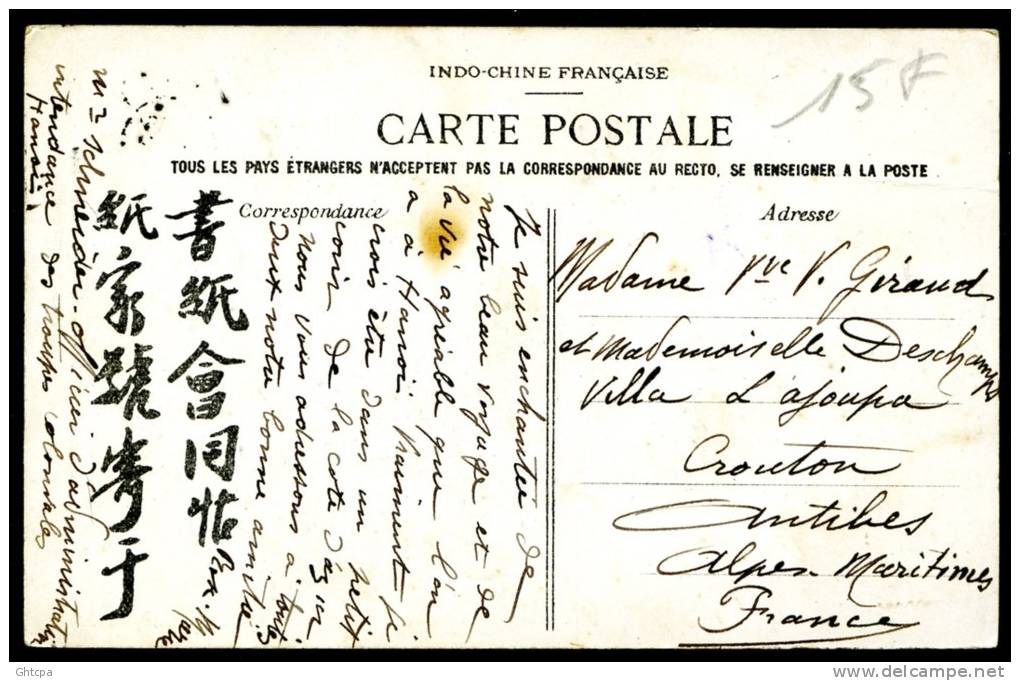 INDO-CHINE FRANÇAISE
CARTE POSTALE
TOUS LES PAYS ÉTRANGERS N'ACCEPTENT PAS LA CORRESPONDANCE AU RECTO, SE RENSEIGNER A LA POSTE
15 F
Correspondance
Adresse
Je suis enchantée de
notre beau voyage et de
la vie agréable que l'on
a à Hanoï vraiment je
crois être dans un petit
coin de la cote d'azur
Nous vous adressons à toutes
deux notre bonne amitié.
書紙會同帖
紙家號寄于
Schneider officier d'administration
intendance des troupes coloniales
Hanoï
Madame Vve V. Giraud
et Mademoiselle Deschamps
Villa L'ajoupa
Crouton
Antibes
Alpes-Maritimes
France
Ghtcpa
delcampe.net